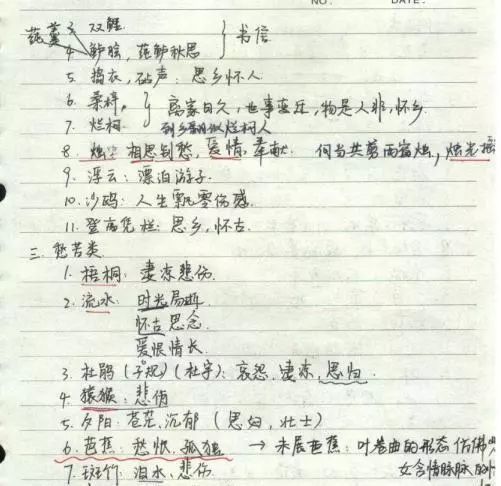 NO. DATE.
莼羹 3. 双鲤
4. 鲈脍, 莼鲈秋思 } 书信
5. 捣衣, 砧声: 思乡怀人
6. 桑梓,
7. 烂柯 } 离家日久, 世事变迁, 物是人非, 怀乡
到乡翻似烂柯人
8. 烛: 相思别愁, 爱情, 奉献. 何当共剪西窗烛, 烛光
9. 浮云: 漂泊游子
10. 沙鸥: 人生飘零伤感
11. 登高凭栏: 思乡, 怀古
三. 愁苦类
1. 梧桐: 凄凉悲伤.
2. 流水: 时光易逝
怀古思念.
爱恨情长
3. 杜鹃 (子规) (杜宇): 哀怨, 凄凉, 思归
4. 猿猴: 悲伤
5. 夕阳: 苍茫, 沉郁 (思妇, 壮士)
6. 芭蕉: 愁恨, 孤独 → 未展芭蕉: 叶卷曲的形态仿佛
7. 斑竹: 泪水, 悲伤. 女含情脉脉的